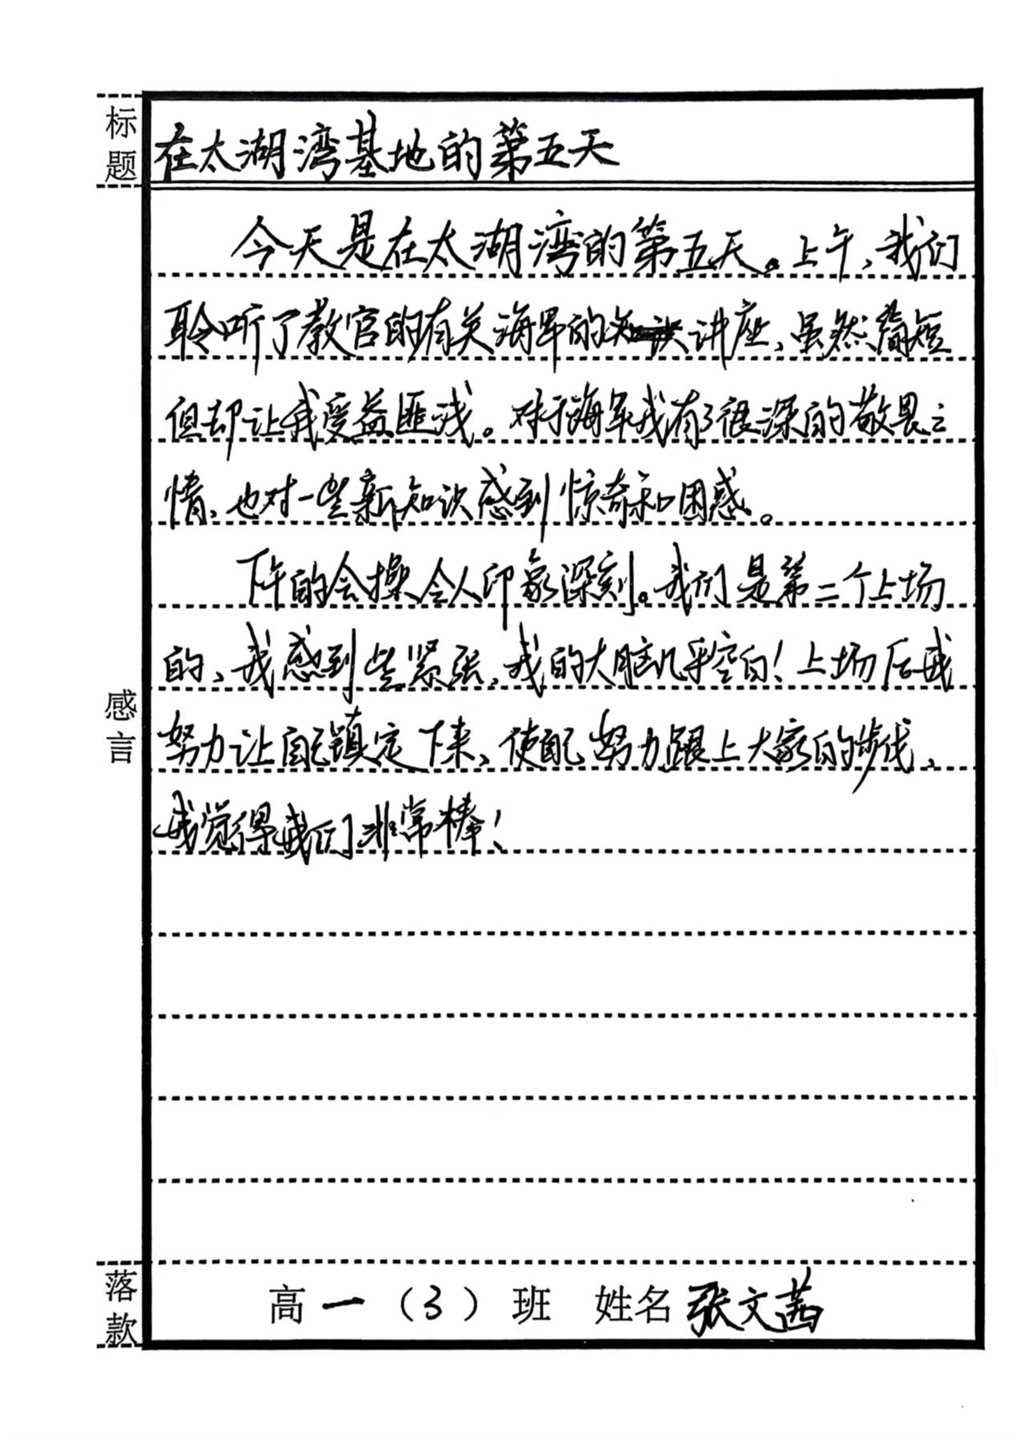 标题
在太湖湾基地的第五天
今天是在太湖湾的第五天。上午，我们
聆听了教官的有关海军的知识讲座，虽然简短
但却让我受益匪浅。对于海军我有了很深的敬畏之
情，也对一些新知识感到惊奇和困惑。
下午的会操令人印象深刻。我们是第二个上场
的，我感到些紧张，我的大脑几乎空白！上场后我
努力让自己镇定下来，使自己努力跟上大家的步伐，
我觉得我们非常棒！
感言
落款
高一（3）班 姓名张文茜